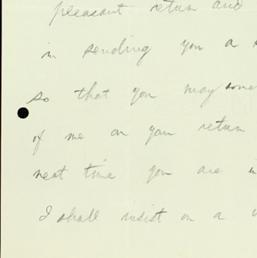 pleasant return and
in sending you a
so that you may some
of me on your return
next time you are
I shall insist on a